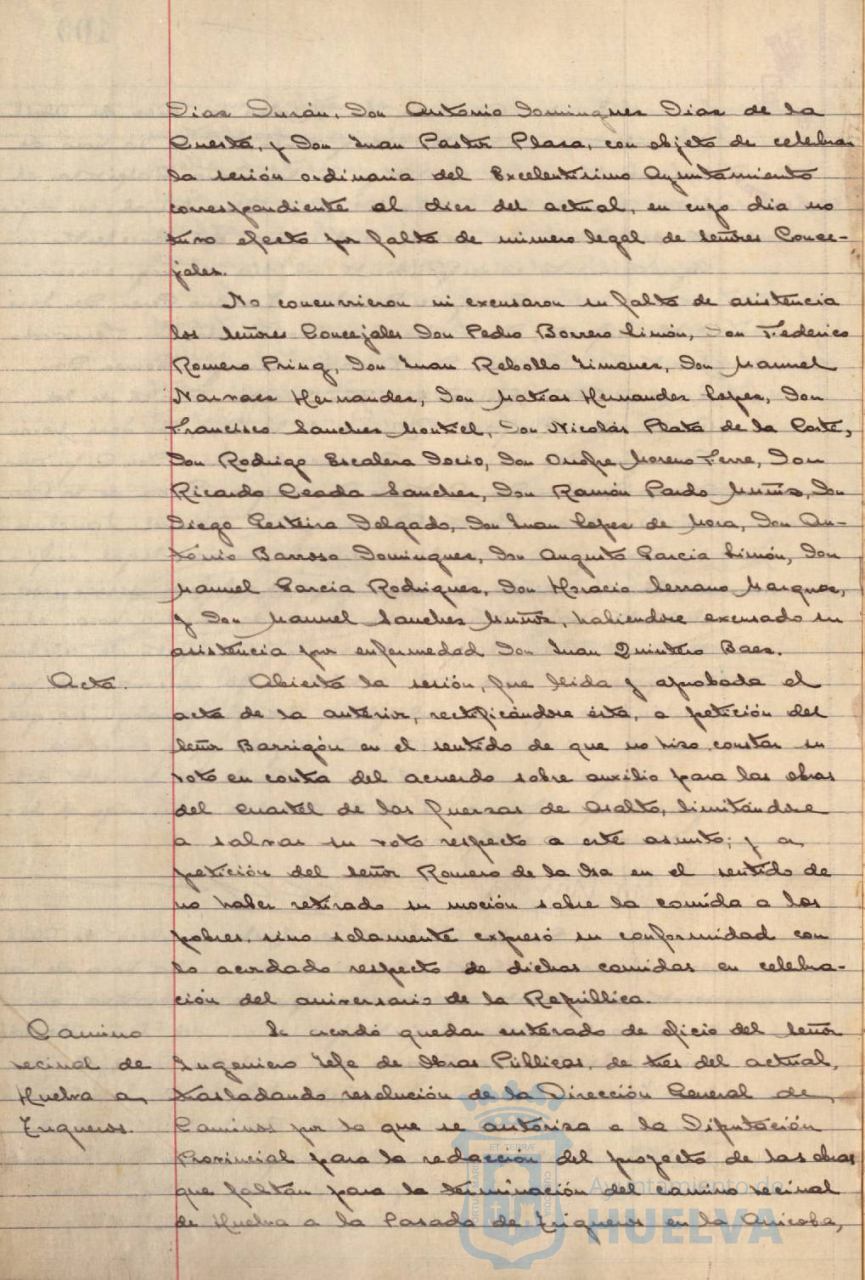 Diaz Durán, Don Antonio Dominguez Diaz de la
Cuesta, y Don Juan Pastor Plaza, con objeto de celebrar
la sesión ordinaria del Excelentisimo Ayuntamiento
correspondiente al diez del actual, en cuyo dia no
tuvo efecto por falta de número legal de señores Conce-
jales.
No concurrieron ni excusaron su falta de asistencia
los señores Concejales Don Pedro Borrero Limón, Don Federico
Romero Prinq, Don Juan Rebollo Jimenez, Don Manuel
Narvaez Hernandez, Don Matias Hernandez Lopez, Don
Francisco Sanchez Montiel, Don Nicolás Plata de la Corte,
Don Rodrigo Escalera Docio, Don Onofre Moreno Ferre, Don
Ricardo Ceada Sanchez, Don Ramón Pardo Muñiz, Don
Diego Lesteira Delgado, Don Juan Lopez de Mora, Don An-
tonio Barroso Dominguez, Don Augusto Garcia Limón, Don
Manuel Garcia Rodriguez, Don Horacio Serrano Marquez,
y Don Manuel Sanchez Muñoz, habiendose excusado su
asistencia por enfermedad Don Juan Quintero Baez.
Acta.
Abierta la sesión, fue leida y aprobada el
acta de la anterior, rectificándose ésta, a petición del
señor Barrigón en el sentido de que no hizo constar su
voto en contra del acuerdo sobre auxilio para las obras
del cuartel de las fuerzas de Asalto, limitándose
a salvar su voto respecto a este asunto; y a
petición del señor Romero de la Isa en el sentido de
no haber retirado su moción sobre la comida a los
pobres, sino solamente expresó su conformidad con
lo acordado respecto de dichas comidas en celebra-
ción del aniversario de la República.
Camino
vecinal de
Huelva a
Trigueros.
Se acordó quedar enterado de oficio del señor
Ingeniero Jefe de Obras Públicas, de tres del actual,
trasladando resolución de la Dirección General de
Caminos por la que se autoriza a la Diputación
Provincial para la redacción del proyecto de las obras
que faltan para la terminación del camino vecinal
de Huelva a la Pasada de Trigueros en la Anicoba,
Ayuntamiento de
HUELVA